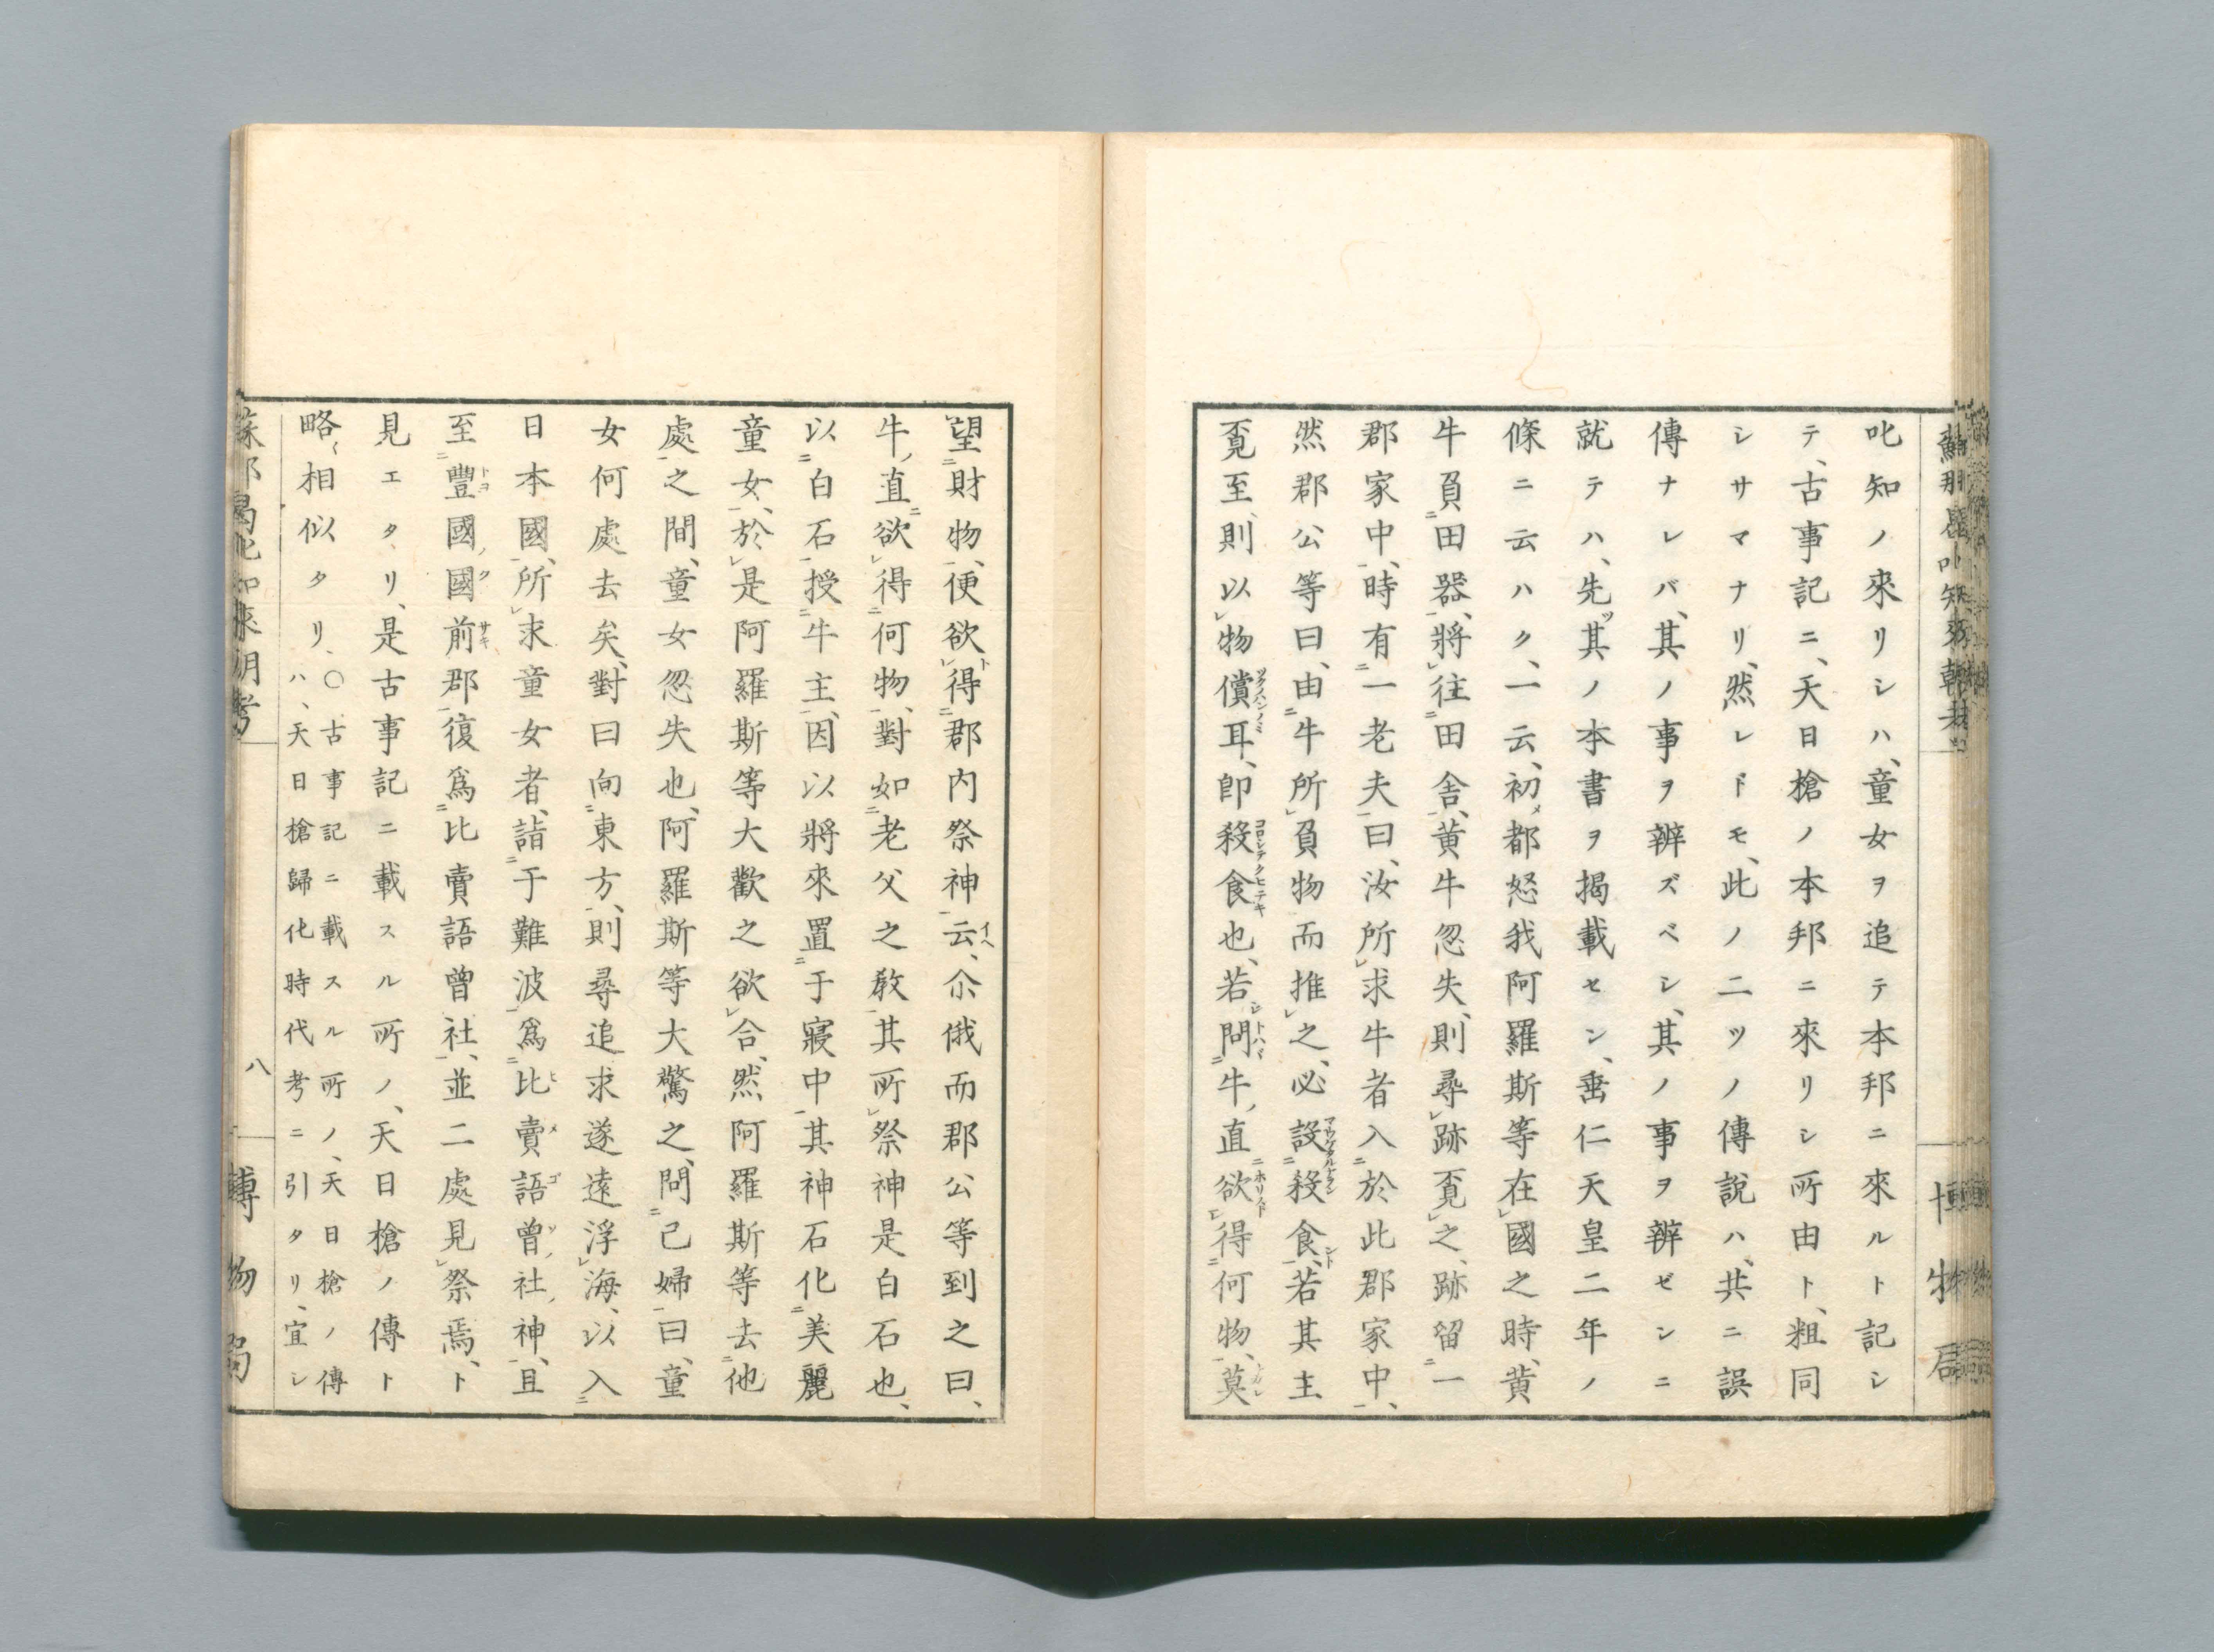 叱知ノ來リシハ、童女ヲ追テ本邦ニ來ルト記シ
テ、古事記ニ、天日槍ノ本邦ニ來リシ所由ト、粗同
シサマナリ、然レドモ、此ノ二ツノ傳說ハ、共ニ誤
傳ナレバ、其ノ事ヲ辨ズベシ、其ノ事ヲ辨ゼンニ
就テハ、先ヅ其ノ本書ヲ揭載セン、垂仁天皇二年ノ
條ニ云ハク、一云、初メ都怒我阿羅斯等在レ國之時、黃
牛負二田器一、將レ往二田舍一、黃牛忽失、則尋レ跡覔レ之、跡留二一
郡家中一、時有二一老夫一曰、汝所レ求牛者入二於此郡家中一、
然郡公等曰、由二牛所レ負物而推レ之、必設二殺食一、若其主
覔至、則以レ物償耳、卽殺食也、若問二牛ノ直一欲レ得二何物一、莫レ
望二財物一、便欲レ得二郡內祭神一云、尒俄而郡公等到之曰、
牛ノ直二欲レ得二何物一、對如二老父之敎一、其所レ祭神是白石也、
以二白石一授二牛主一、因以將來置二于寢中一、其神石化二美麗
童女一、於レ是阿羅斯等大歡之欲レ合、然阿羅斯等去二他
處一之間、童女忽失也、阿羅斯等大驚之、問二己婦一曰、童
女何處去矣、對曰向二東方一、則尋追求遂遠浮レ海、以入二
日本國一、所レ求童女者、詣二于難波一爲二比賣語曾社神一、且
至二豐國國前郡一、復爲二比賣語曾社一、並二處見レ祭焉、ト
見エタリ、是古事記ニ載スル所ノ、天日槍ノ傳ト
略、相似タリ、〇古事記ニ載スル所ノ、天日槍ノ傳
ハ、天日槍歸化時代考ニ引タリ、宜シ
八
博物局